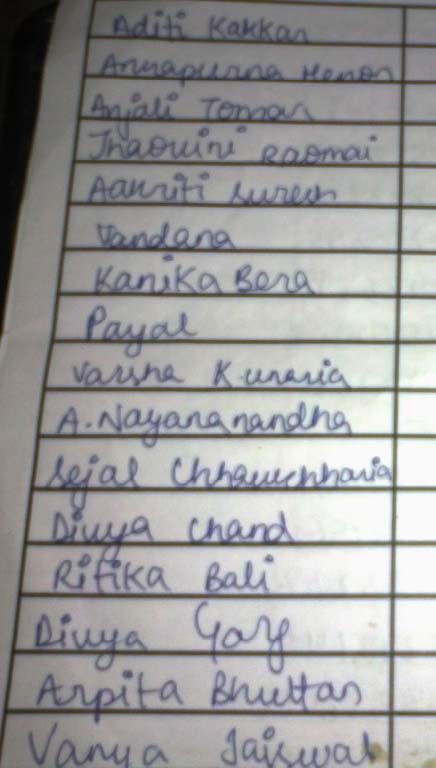 Aditi Kakkar
Annapurna Menon
Anjali Tomar
Aakriti Suresh
Vandana
Kanika Bera
Payal
Varsha
A. Nayananandha
Sejal Chhawchharia
Divya Chand
Ritika Bali
Divya Garg
Arpita Bhuttan
Vanya Jaiswal